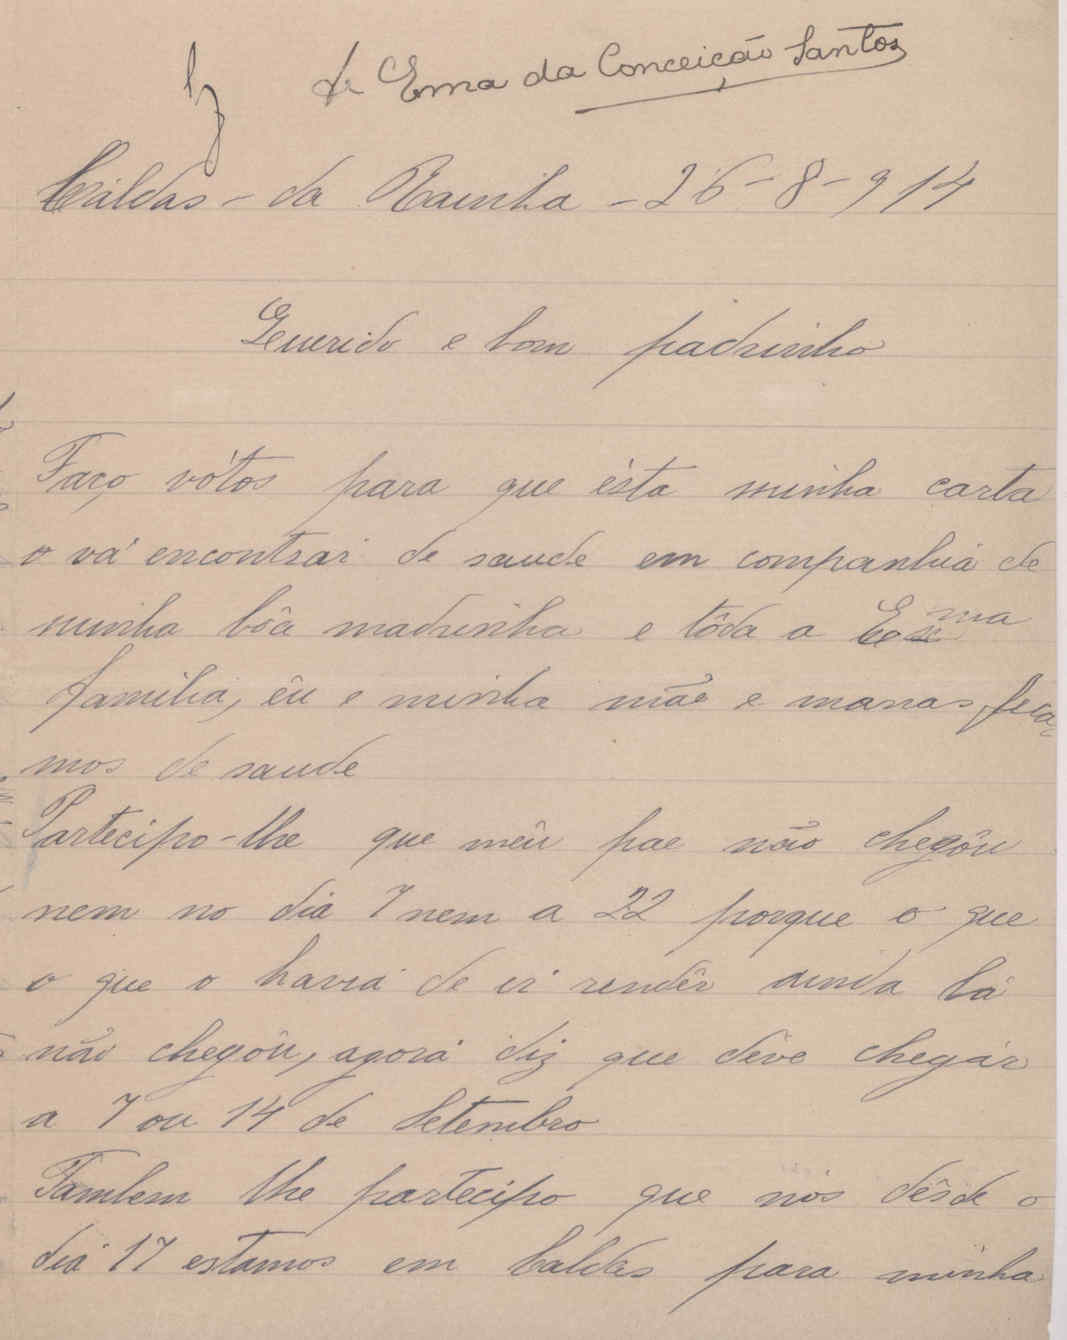 de Ema da Conceição Santos
Caldas - da Rainha - 26-8-914
Querido e bom padrinho
Faço vótos para que ésta minha carta
o vá encontrar de saude em companhia de
minha bôa madrinha e tôda a Exma
familia, êu e minha mãe e manas fica-
mos de saude
Partecipo-lhe que mêu pae não chegôu
nem no dia 7 nem a 22 porque o que
o que o havia de ir rendêr ainda lá
não chegôu, agora diz que dêve chegár
a 7 ou 14 de Setembro
Tambem lhe partecipo que nós dêsde o
dia 17 estamos em Caldas para minha